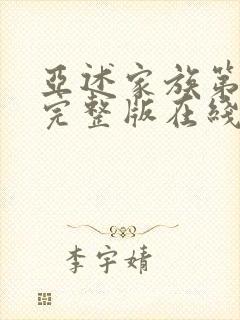 亞述家族第
完整版在綫
李宇婧